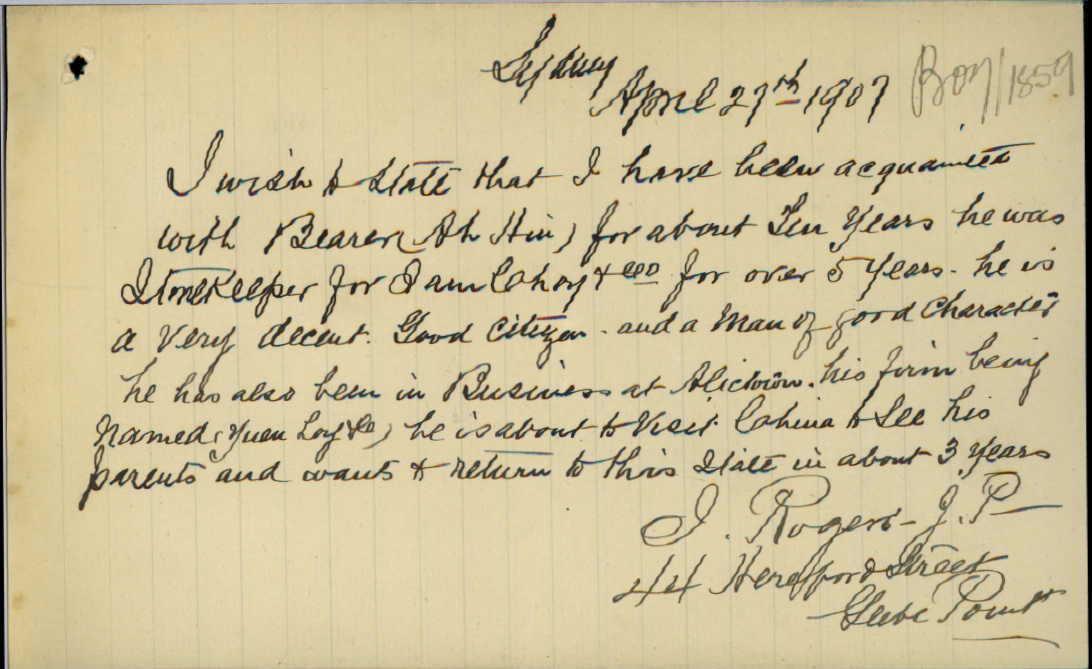 Sydney
April 27th 1907
I wish to state that I have been acquainted
with Bearer (Ah Hin) for about Ten Years he was
Storekeeper for Sam Choy & Coo for over 5 Years. he is
a Very decent. Good Citizen. and a Man of good Character
he has also been in Business at Alictown. his firm being
Named (Yuen Loy & Co) he is about to Visit China to See his
parents and wants to return to this State in about 3 Years
I. Rogers - J.P
44 Hereford Street
Glebe Point